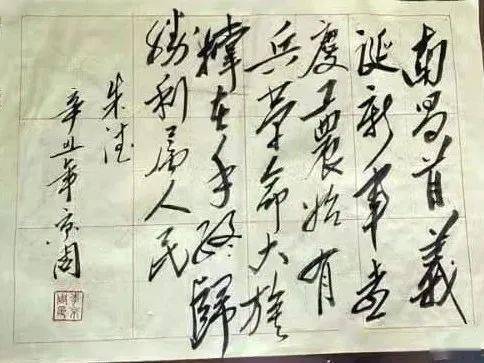 南昌首義
誕新軍喜
慶工農始有
兵革命大旗
撑在手終歸
勝利属人民
朱德
辛丑年京周